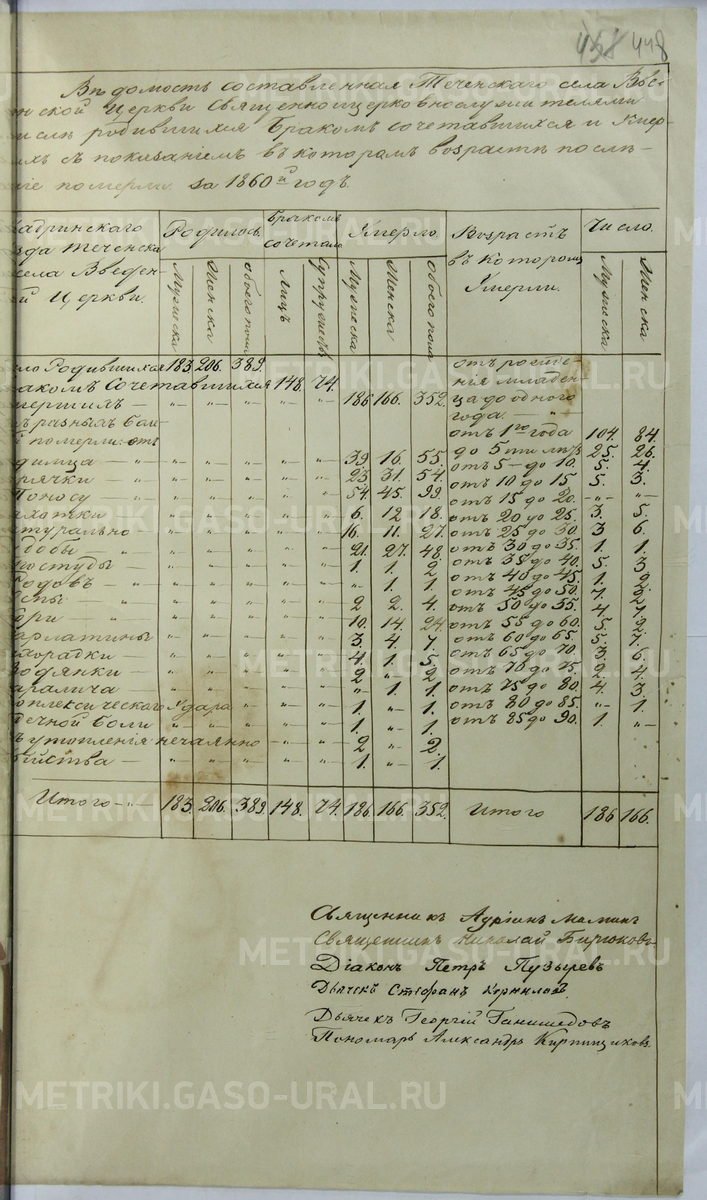 448
Вѣдомость составленная Теченскаго села Введе-
нской Церкви Священноцерковнослужителями
числѣ родившихся Бракомъ сочетавшихся и Умер-
ихъ съ показаніемъ въ которомъ возрастѣ послѣ-
ніе померли за 1860й годъ.
адринскаго Родилось. Бракомъ сочетал. Умерло. Возрастъ Число.
зда Теченска въ которомъ
села Введен- Умерли.
й Церкви.
Мужеска Женска обоего пола Лицъ Супружествъ Мужеска Женска Обоего пола Мужеска Женска
ло Родившихся 183. 206. 389. отъ рожде-
акомъ Сочетавшихся 148. 74. нія младен-
мершихъ — „ „ „ „ „ 186 166. 352. ца до одного
ъ разныхъ бол года — „
померли: отъ отъ 1го года 104. 84.
димца „ „ „ „ „ 39. 16. 55. до 5ти лѣтъ 25. 26.
рячки „ „ „ „ „ 23. 31. 54. отъ 5 до 10. 5. 4.
Поносу „ „ „ „ „ 54. 45. 99. отъ 10 до 15 5. 3.
ахотки „ „ „ „ „ 6. 12 18. отъ 15 до 20. „ „
турально „ „ „ „ „ 16. 11. 27. отъ 20 до 25. 3. 5.
добы „ „ „ „ „ 21. 27. 48. отъ 25 до 30. 3 6.
ростуды „ „ „ „ „ 1. 1. 2. отъ 30 до 35. 1. 1.
Родовъ „ „ „ „ „ „ 1. 1. отъ 35 до 40. 5. 3
спы „ „ „ „ „ 2 2. 4. отъ 40 до 45. 1. 2.
ори „ „ „ „ „ 10. 14. 24. отъ 45 до 50. 7. 3.
арлатины „ „ „ „ „ 3. 4. 7. отъ 50 до 55. 4 7.
ихорадки „ „ „ „ „ 4. 1. 5. отъ 55 до 60. 5 2.
одянки „ „ „ „ „ 2 „ 2. отъ 60 до 65 5. 7.
аралича „ „ „ „ „ „ 1. 1. отъ 65 до 70. 3. 6.
поплексическаго Удара „ „ 1. „ 1. отъ 70 до 75. 2 4.
дечной боли „ „ „ „ „ 1. „ 1. отъ 75 до 80. 4. 3.
ъ утопленія нечаянно „ „ „ 2 „ 2. отъ 80 до 85. „ 1.
бійства „ „ „ „ „ 1. „ 1. отъ 85 до 90. 1 „
Итого „ 183. 206. 389. 148. 74. 186. 166. 352. Итого 186 166.
Священникъ Адріанъ Маминъ
Священникъ Николай Бирюковъ
Діаконъ Петръ Пузыревъ
Дьячекъ Стефанъ Корниловъ.
Дьячекъ Георгій
Пономарь Александръ Кирпищиковъ
METRIKI.GASO-URAL.RU